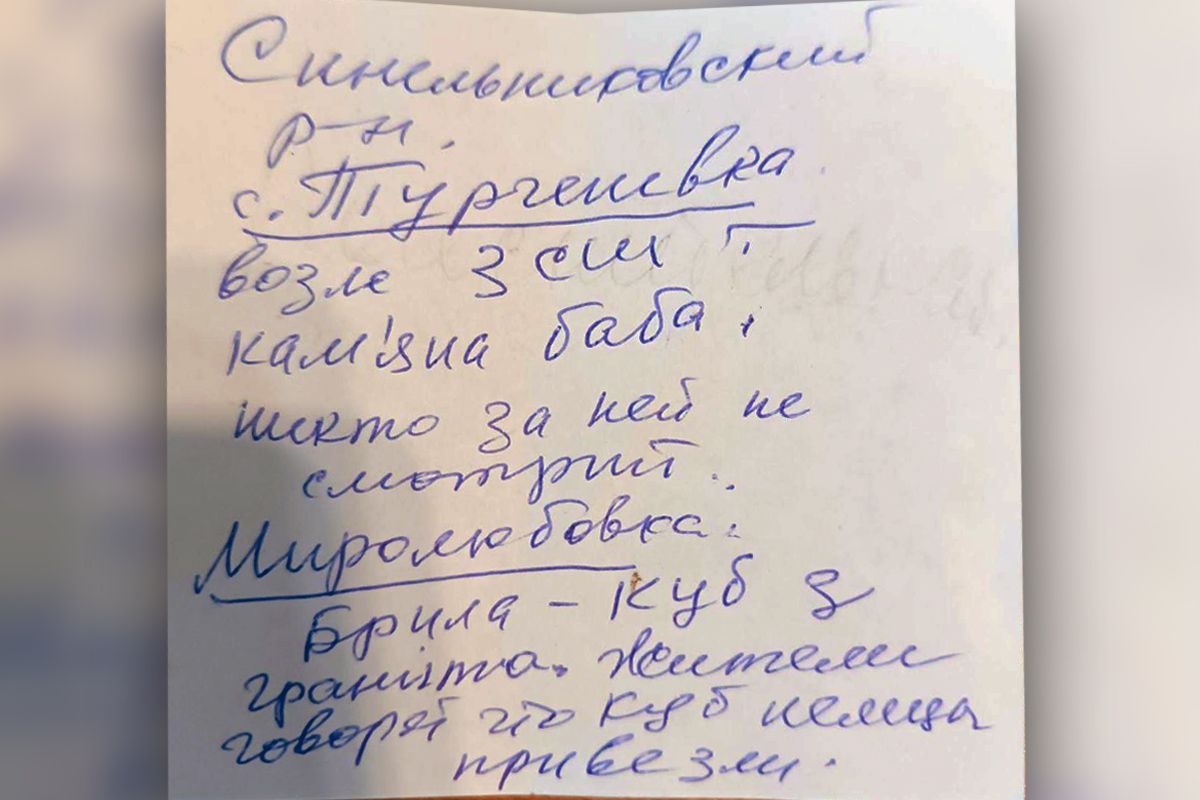 Синельниковский
р-н.
с. Тургеневка.
возле З СШ
кам'яна баба.
никто за ней не
смотрит.
Миролюбовка.
Брила - куб з
граніта. Жители
говорят что куб немцы
привезли.